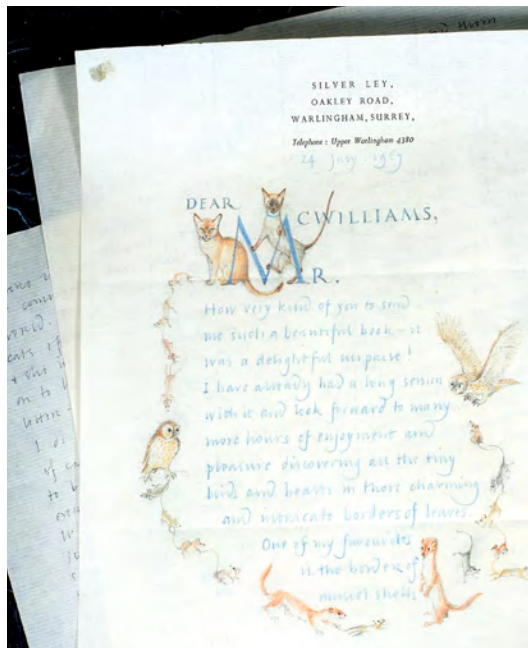 SILVER LEY,
OAKLEY ROAD,
WARLINGHAM, SURREY,
Telephone: Upper Warlingham 4380
24 July 1967
DEAR
MCWILLIAMS,
R.
How very kind of you to send
me such a beautiful book – it
was a delightful surprise!
I have already had a long session
with it and look forward to many
more hours of enjoyment and
pleasure discovering all the tiny
birds and beasts in those charming
and intricate borders of leaves.
One of my favourites
is the border of
mussel shells